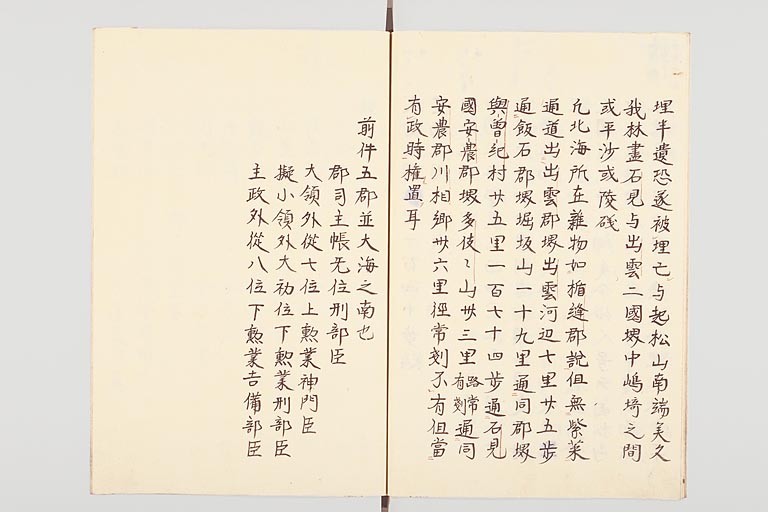 埋半遺恐遂被埋亡与起松山南端美久
我林盡石見与出雲二國堺中嶋埼之間
或平沙或陵礒
凢北海所在雜物如楯縫郡說但無紫菜
通道出出雲郡堺出雲河辺七里廿五步
通飯石郡堺堀坂山一十九里通同郡堺
與曽紀村廾五里一百七十四步通石見
國安農郡堺多伎〻山卅三里路常有剗通同
安農郡川相鄉卅六里徑常剗不有但當
有政時權置耳
前件五郡並大海之南也
郡司主帳无位刑部臣
大領外從七位上勲業神門臣
擬小領外大初位下勲業刑部臣
主政外從八位下勲業吉備部臣